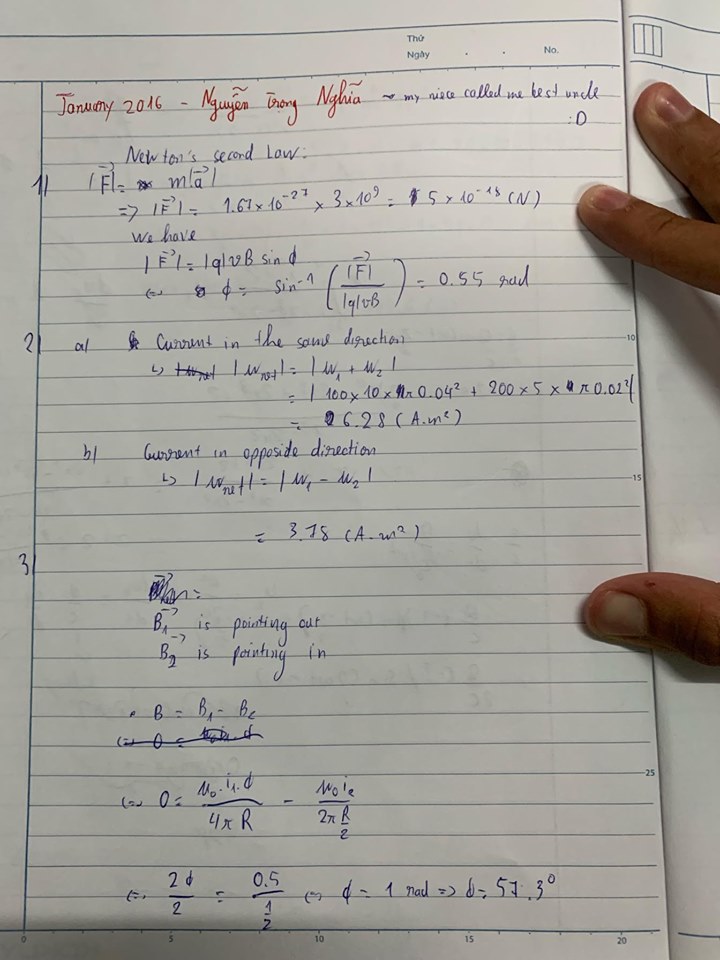 Thứ
Ngày . . No.
January 2016 - Nguyễn Trọng Nghĩa ~ my niece called me best uncle :D
Newton's second Law:
1/ |F⃗| = m|a⃗|
=> |F⃗| = 1.67 x 10⁻²⁷ x 3 x 10⁹ = 5 x 10⁻¹⁸ (N)
We have
|F⃗| = |q|vB sin ϕ
<=> ϕ = sin⁻¹ (|F⃗| / |q|vB) = 0.55 rad
2/ a/ Current in the same direction
↳ |μnet| = |μ₁ + μ₂|
= | 100 x 10 x π 0.04² + 200 x 5 x π 0.02² |
= 6.28 (A.m²)
b/ Current in opposide direction
↳ |μnet| = |μ₁ - μ₂|
= 3.78 (A.m²)
3/
B₁⃗ is pointing out
B₂⃗ is pointing in
• B = B₁ - B₂
<=> 0 = μ₀.i₁.ϕ / 4π R - μ₀ i₂ / 2π R/2
<=> 2ϕ / 2 = 0.5 / 1/2 <=> ϕ = 1 rad => ϕ = 57.3°
10
15
25
0 5 10 15 20